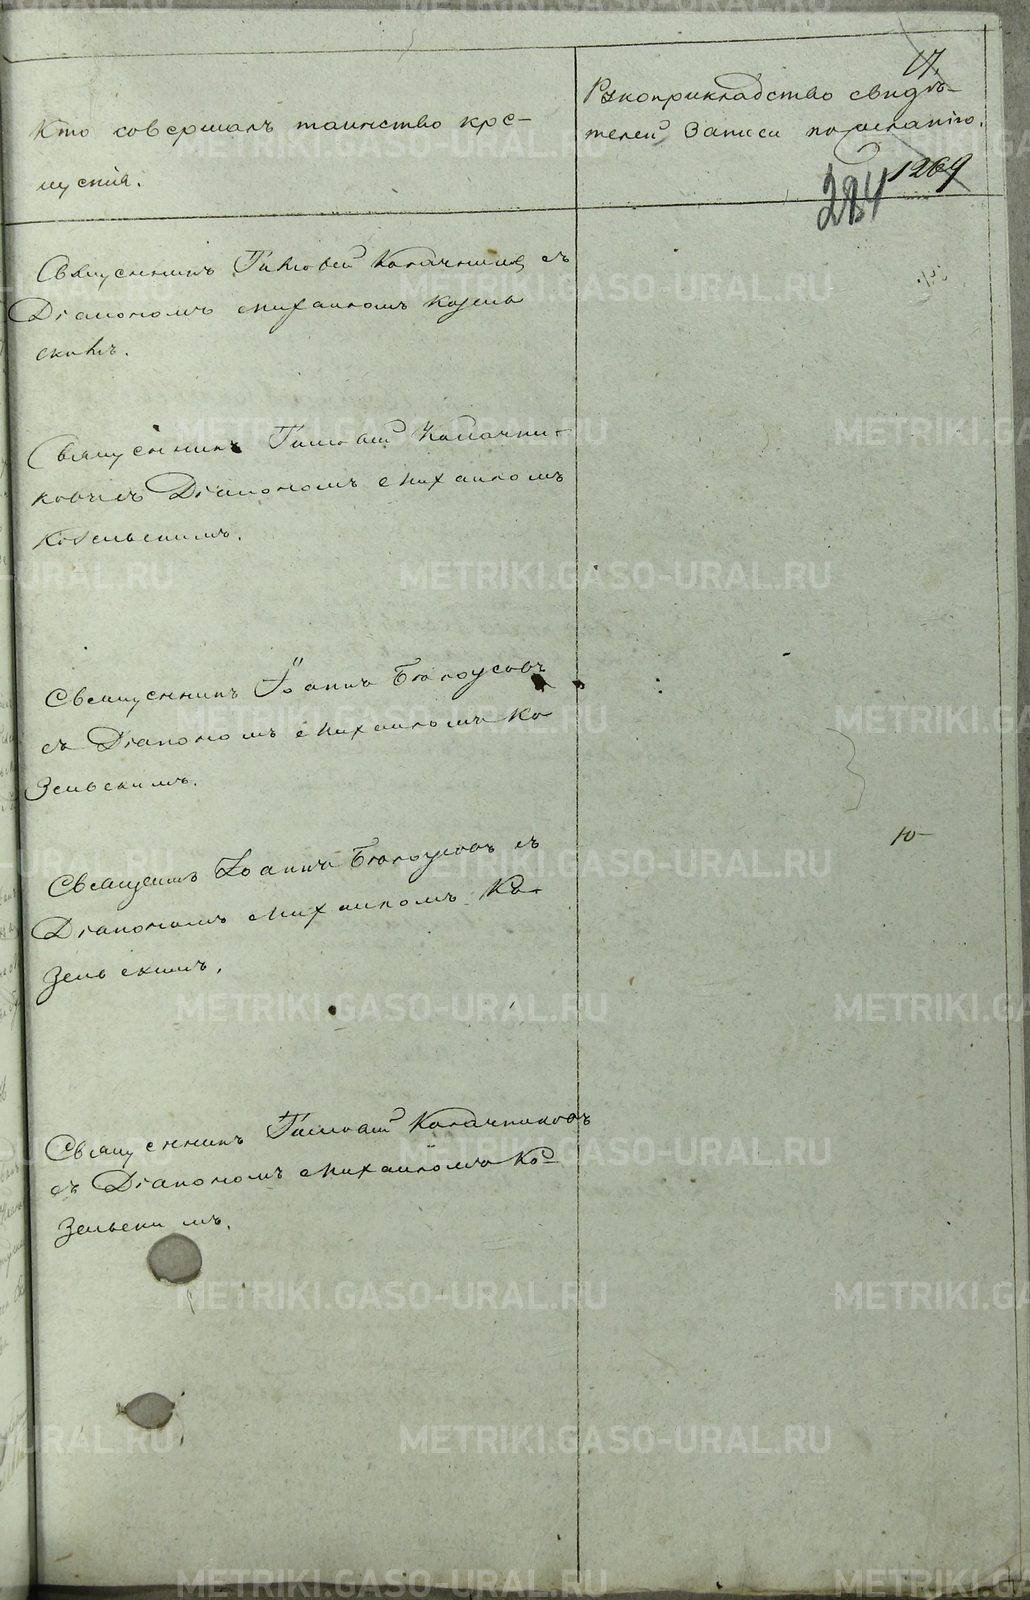 17.
Кто совершалъ таинство кре-
щенія.
Рукоприкладство свидѣ-
телей записи по желанію.
1269
284
Священникъ Тимофей Калачников съ
Діакономъ Михаиломъ Козель
скимъ.
Священникъ Тимофей Калачни-
ковъ съ Діакономъ Михаиломъ
Козельскимъ.
Священникъ Іоаннъ Бѣлоусовъ
съ Діакономъ Михаиломъ Ко
зельскимъ.
Священикъ Іоаннъ Бѣлоусовъ съ
Діакономъ Михаиломъ Ко-
зельскимъ.
Священникъ Тимофей Калачниковъ
съ Діакономъ Михаиломъ Ко-
зельскимъ.
METRIKI.GASO-URAL.RU